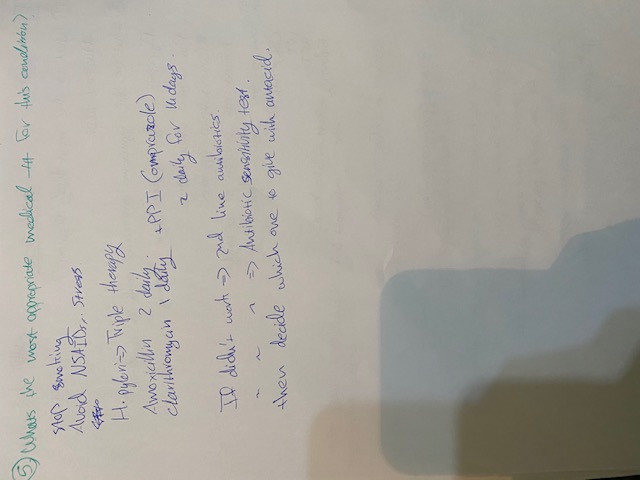 5) Whats the most appropriate medical ttt for this condition?
stop smoking
Avoid NSAIDs, Stress
H. pylori → Triple therapy
Amoxicillin 2 daily.
clarithromycin 1 daily +PPI (omprazole)
2 daily for 14 days.
If didn't work → 2nd line antibiotics.
~ ~ ~ ⇒ Antibiotic sensitivity test.
then decide which one to give with antacid.